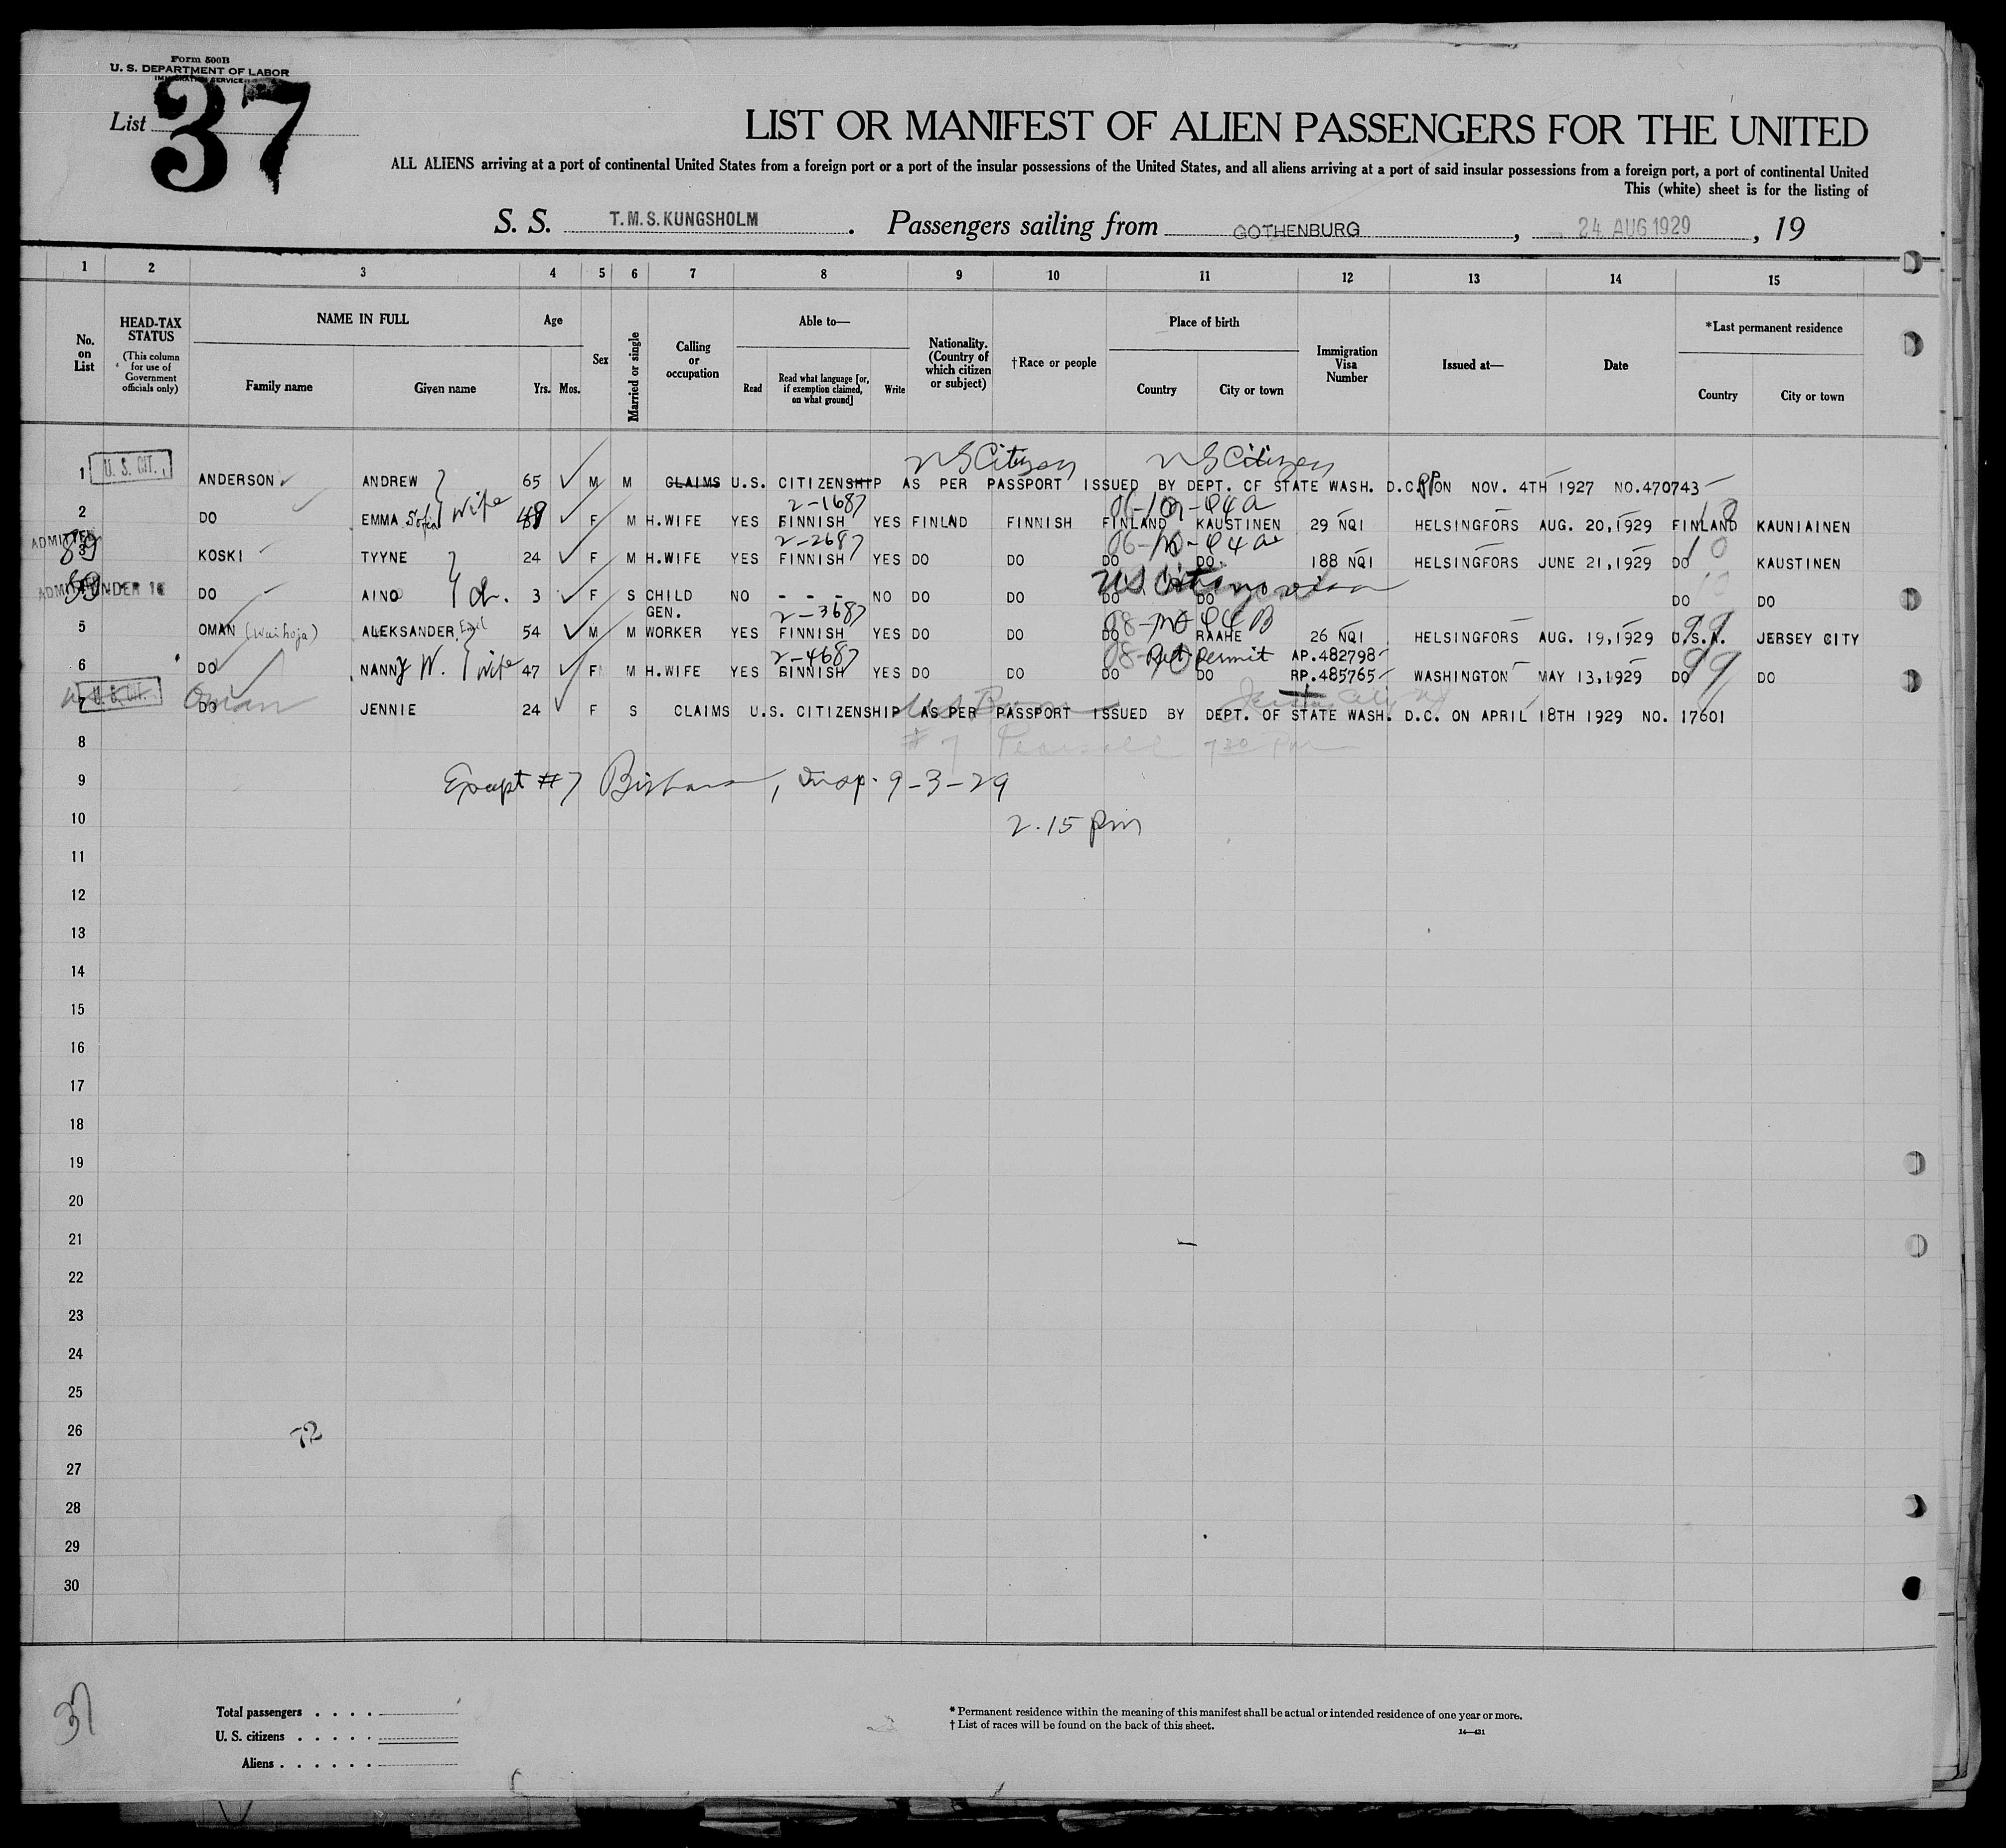 Form 500B
U. S. DEPARTMENT OF LABOR
IMMIGRATION SERVICE
List 37
LIST OR MANIFEST OF ALIEN PASSENGERS FOR THE UNITED
ALL ALIENS arriving at a port of continental United States from a foreign port or a port of the insular possessions of the United States, and all aliens arriving at a port of said insular possessions from a foreign port, a port of continental United
This (white) sheet is for the listing of
S. S. T.M.S. KUNGSHOLM. Passengers sailing from GOTHENBURG, 24 AUG 1929, 19
1 2 3 4 5 6 7 8 9 10 11 12 13 14 15
No. on List
HEAD-TAX STATUS
(This column for use of Government officials only)
NAME IN FULL
Family name
Given name
Age
Yrs. Mos.
Sex
Married or single
Calling or occupation
Able to—
Read
Read what language [or, if exemption claimed, on what ground]
Write
Nationality. (Country of which citizen or subject)
†Race or people
Place of birth
Country
City or town
Immigration Visa Number
Issued at—
Date
*Last permanent residence
Country
City or town
US Citizen US Citizen
1 U. S. CIT. ANDERSON ANDREW 65 M M CLAIMS U.S. CITIZENSHIP AS PER PASSPORT ISSUED BY DEPT. OF STATE WASH. D.C. ON NOV. 4TH 1927 NO.470743
2-1687
2 DO EMMA Sofia Wife 49 F M H.WIFE YES FINNISH YES FINLAND FINNISH FINLAND KAUSTINEN 29 NQI HELSINGFORS AUG. 20,1929 FINLAND KAUNIAINEN
2-2687
ADMITTED 89
3 KOSKI TYYNE 24 F M H.WIFE YES FINNISH YES DO DO DO DO 188 NQI HELSINGFORS JUNE 21,1929 DO KAUSTINEN
UNDER 16
DO AINO d. 3 F S CHILD NO - - - NO DO DO DO DO DO DO
2-3687
5 OMAN ALEKSANDER Emil 54 M M GEN. WORKER YES FINNISH YES DO DO DO RAAHE 26 NQI HELSINGFORS AUG. 19,1929 U.S.A. JERSEY CITY
2-4687 Permit AP.482798
6 DO NANNY W. wife 47 F M H.WIFE YES FINNISH YES DO DO DO DO RP.485765 WASHINGTON MAY 13,1929 DO DO
7 U. S. CIT. Oman DO JENNIE 24 F S CLAIMS U.S. CITIZENSHIP AS PER PASSPORT ISSUED BY DEPT. OF STATE WASH. D.C. ON APRIL 18TH 1929 NO. 17601
8 #7
9 Except #7 Insp. 9-3-29
10 2.15 pm
11
12
13
14
15
16
17
18
19
20
21
22
23
24
25
26 72
27
28
29
30
37
Total passengers
U. S. citizens
Aliens
* Permanent residence within the meaning of this manifest shall be actual or intended residence of one year or more.
† List of races will be found on the back of this sheet.
14—431